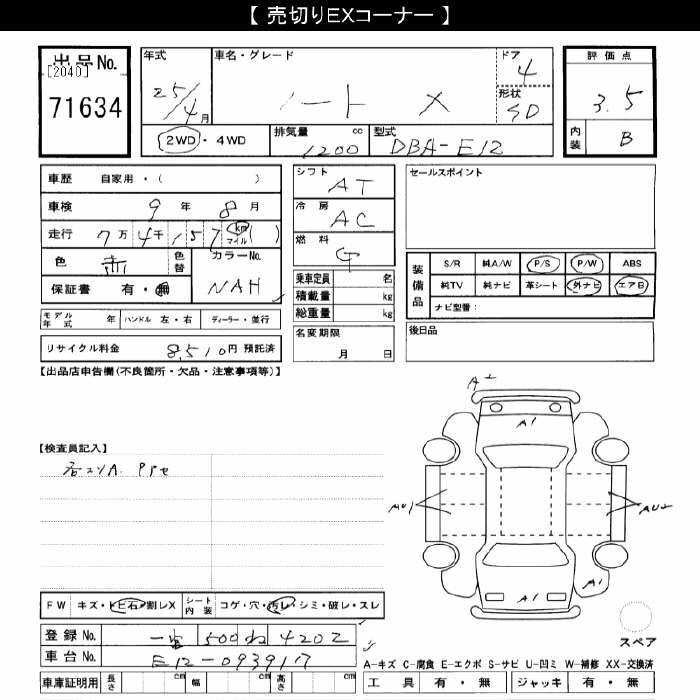 【 売切りEXコーナー 】
出品No.
[2040]
71634
年式
25/4月
車名・グレード
ノート X
ドア
4
形状
5D
評価点
3.5
内装
B
2WD・4WD
排気量
1200 cc
型式
DBA-E12
車歴 自家用・( )
車検 9年 8月
走行 7万 4千 157 km マイル ( )
色 赤 色替 カラーNo.
NAH
保証書 有・無
モデル年式 年 ハンドル 左・右 ディーラー・並行
リサイクル料金 8,510円 預託済
シフト
AT
冷房
AC
燃料
G
乗車定員 名
積載量 kg
総重量 kg
名変期限
月 日
セールスポイント
装備品
S/R 純A/W P/S P/W ABS
純TV 純ナビ 革シート 外ナビ エアB
ナビ型番:
後日品
【出品店申告欄(不良箇所・欠品・注意事項等)】
【検査員記入】
A1
A1
A1
スペア
FW キズ・トビ石・割レX
シート内装 コゲ・穴・汚レ・シミ・破レ・スレ
登録No. 一宮 500 ね 4202
車台No. E12-093917
車庫証明用 長さ cm 幅 cm 高さ cm
A-キズ C-腐食 E-エクボ S-サビ U-凹ミ W-補修 XX-交換済
工具 有・無 ジャッキ 有・無